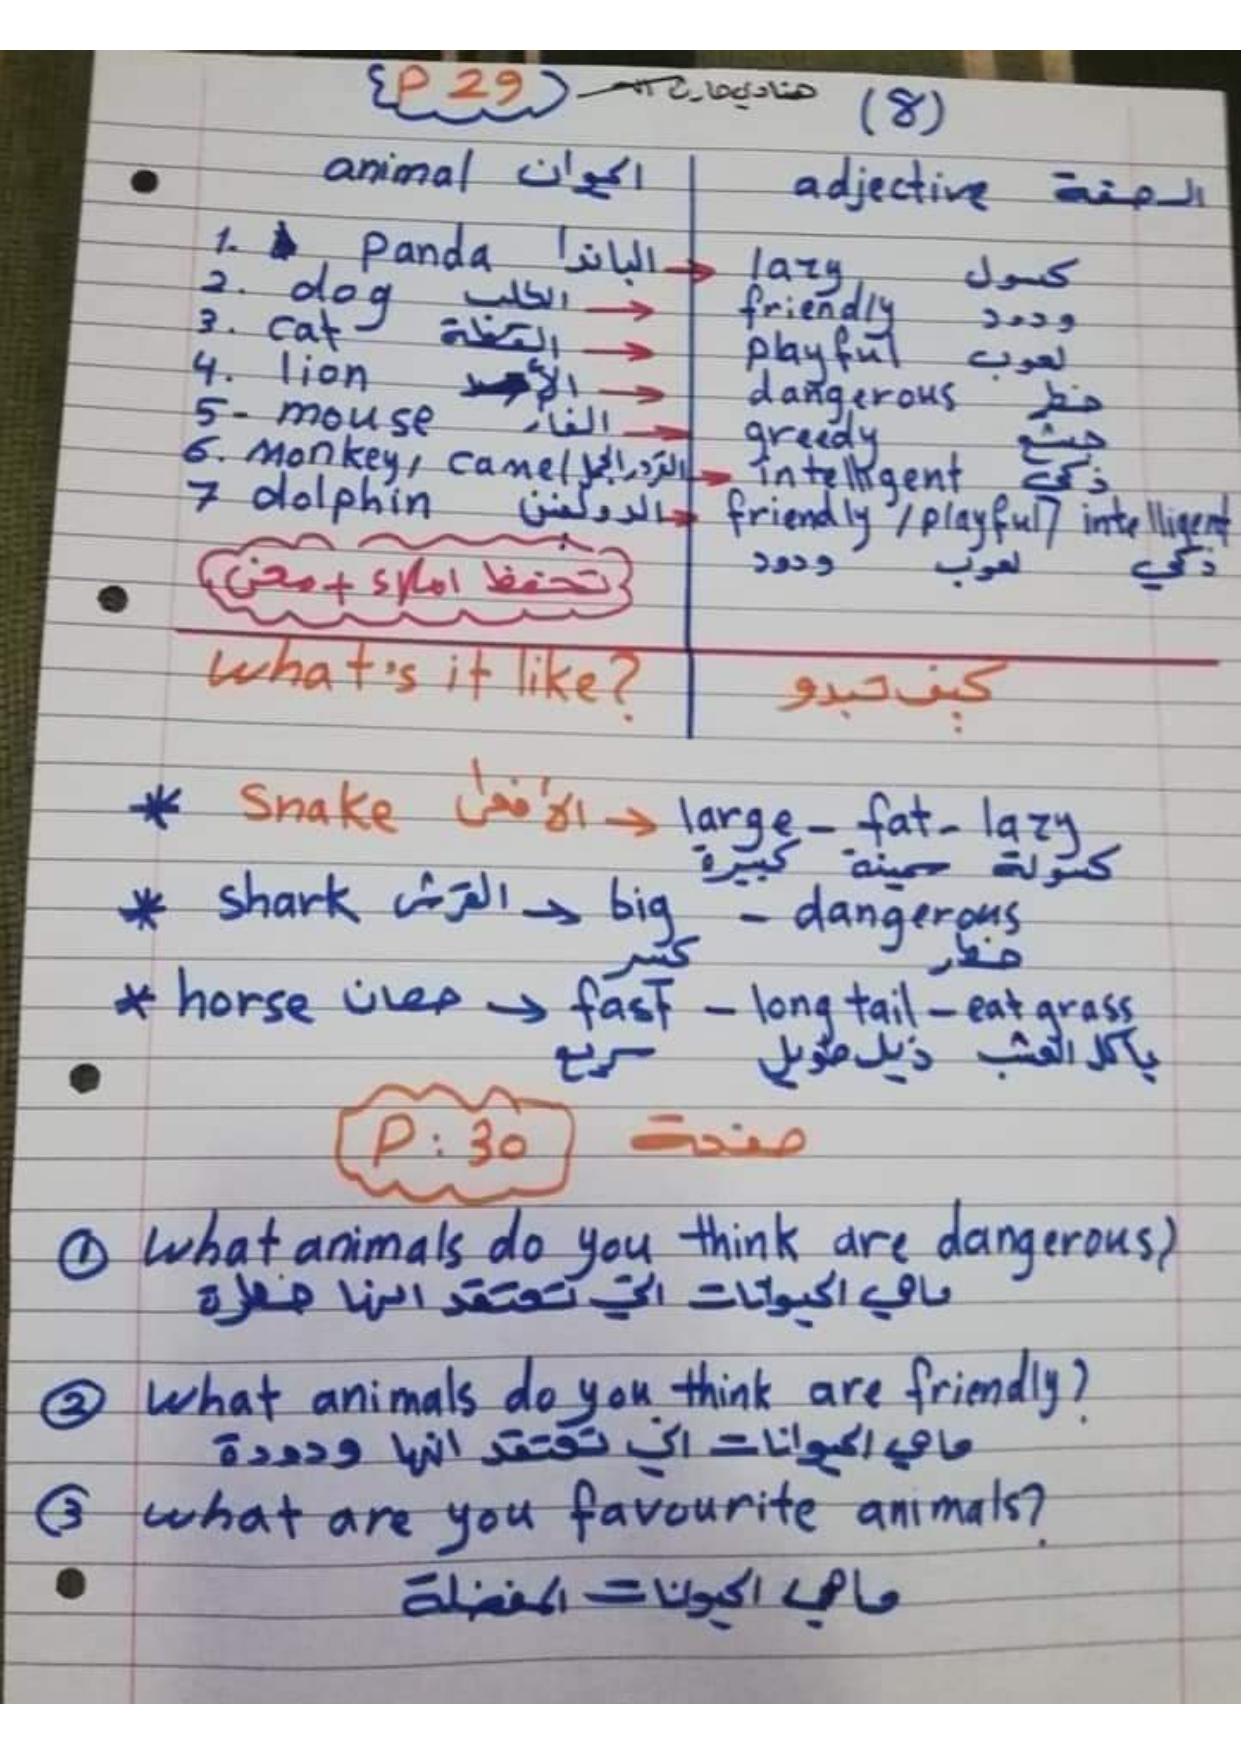 P 29 (8)
animal الحيوان adjective الصفة
1. Panda الباندا → lazy كسول
2. dog الكلب → friendly ودود
3. cat القطة → playful لعوب
4. lion الأسد → dangerous خطر
5- mouse الفأر → greedy جشع
6. Monkey, camel القرد, الجمل → intelligent ذكي
7 dolphin الدولفين → friendly / playful / intelligent
ودود لعوب ذكي
تحفظ املاء + معنى
What's it like? كيف تبدو
* Snake الأفعى → large - fat - lazy
كبيرة سمينة كسولة
* shark القرش → big - dangerous
كبير خطر
* horse حصان → fast - long tail - eat grass
سريع ذيل طويل يأكل العشب
P: 30 صفحة
① What animals do you think are dangerous?
ماهي الحيوانات التي تعتقد انها خطرة
② What animals do you think are friendly?
ماهي الحيوانات التي تعتقد انها ودودة
③ What are you favourite animals?
ماهي الحيوانات المفضلة